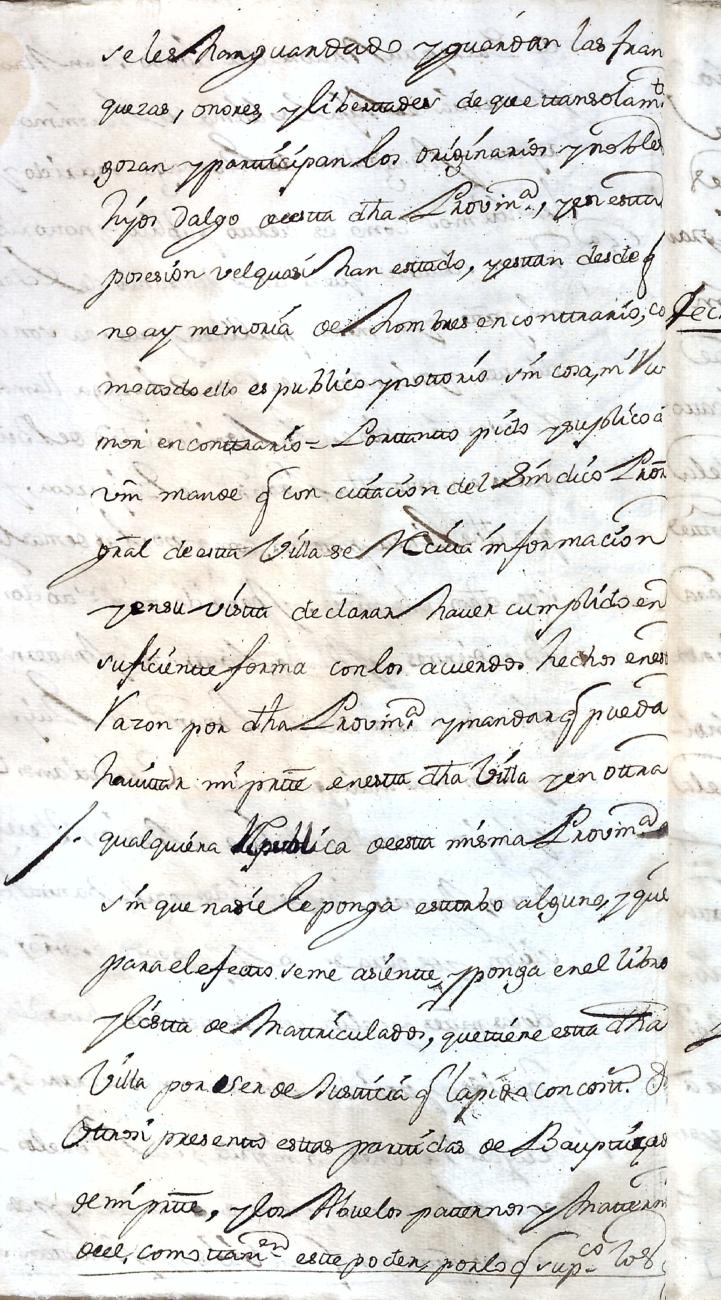 se les han guardado y guardan las fran
quezas, onores y libertades de que ttan solam.te
gozan y partticipan los originarios y nobles
hijos dalgo de estta dha Provin.a, y en estta
posesion vel quasi han esttado, y esttan desde q
no ay memoria de hombres en conttrario, co
mo ttodo ello es publico y nottorio sin cosa, ni Ru
mor en conttrario = Por ttanto pido y suplico a
Vm mande q con cittacion del Sindico Pror
gral de estta Villa se Reciva informacion
y en su vistta declarar haver cumplido en
suficientte forma con los acuerdos hechos en estta
Razon por dha Provin.a y mandar q pueda
havittar mi prtte en estta dha Villa y en ottra
qualquiera Republica de estta misma Provin.a
sin que nadie le ponga esttorbo alguno, y que
para el efectto se me asientte y ponga en el libro
y listta de Mattriculados, que ttiene estta dha
Villa por ser de Justticia q la pido con costt.s
Ottrosi presentto esttas parttidas de Bauptizados
de mi prtte, y los Abuelos patternos y Matternos
de el, como ttamvien estte poder, por lo q sup.co los